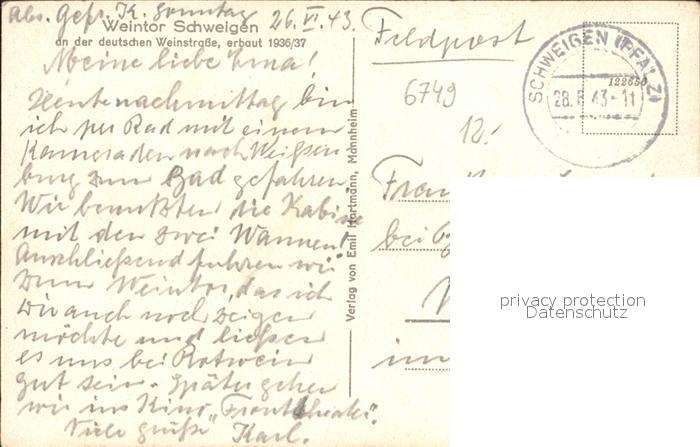 Abs. Gefr. K. Sonntag 26.VI.43.
Weintor Schweigen
an der deutschen Weinstraße, erbaut 1936/37
Meine liebe Erna!
Heute nachmittag bin
ich per Rad mit einem
Kameraden nach Weißen
burg zum Bad gefahren
Wir benutzten die Kabine
mit den zwei Wannen!
Anschließend fuhren wir
zum Weintor, das ich
Dir auch noch zeigen
möchte und ließen
es uns bei Rotwein
gut sein. Später gehen
wir ins Kino "Fronttheater".
Viele Grüße Karl.
Verlag von Emil Hartmann, Mannheim
Feldpost
SCHWEIGEN (PFALZ)
28.6.43-11
122650
6749
12.-
Frau
bei
im
privacy protection
Datenschutz